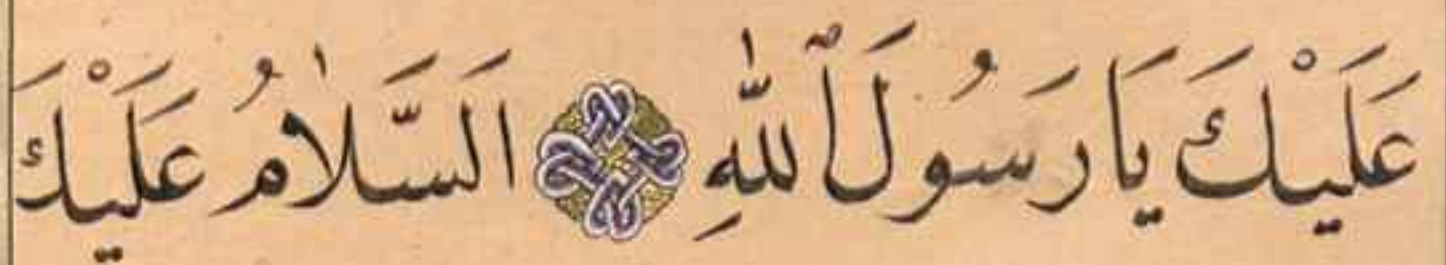 عَلَيْكَ يَا رَسُولَ ٱللّٰهِ اَلسَّلَامُ عَلَيْكَ